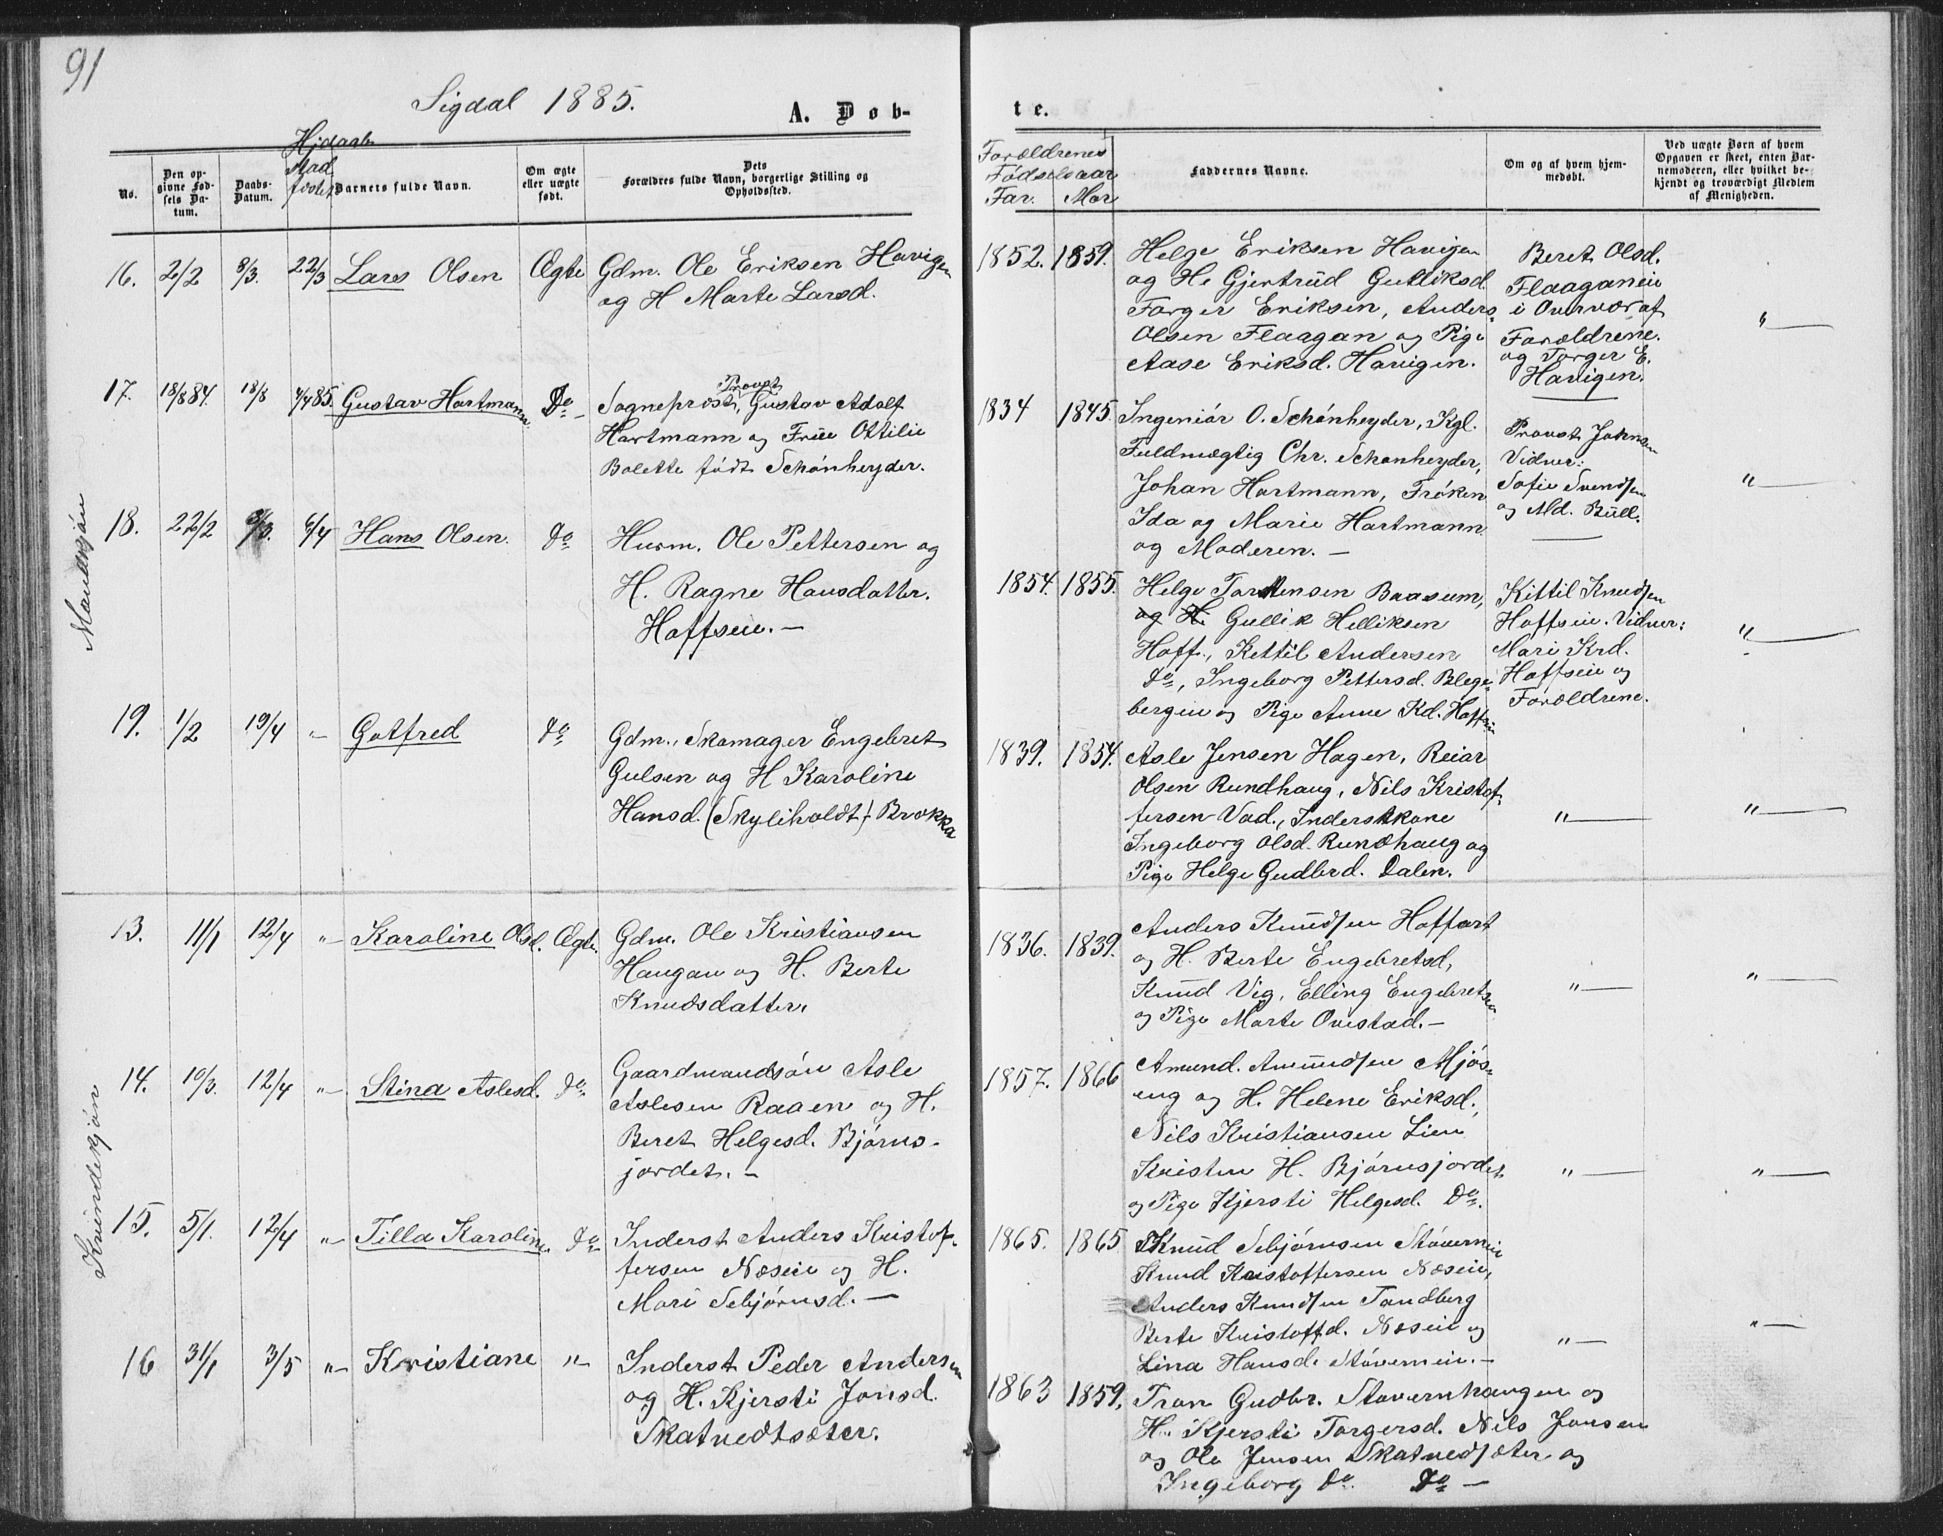 91
Sigdal 1885.
A. Døb-
te.
No.
Den op-
givne Fød-
sels Da-
tum.
Daabs-
Datum.
Hjdøbt
Stad
fæstet
Barnets fulde Navn.
Om ægte
eller uægte
født.
Dets
Forældres fulde Navn, borgerlige Stilling og
Opholdssted.
Forældrenes
Fødselsaar
Far. Mor
Faddernes Navne.
Om og af hvem hjem-
medøbt.
Ved uægte Børn af hvem
Opgaven er skeet, enten Bar-
nemoderen, eller hvilket be-
kjendt og troværdigt Medlem
af Menigheden.
16. 2/2 8/3. 22/3 Lars Olsen Ægte
Gdm. Ole Eriksen Havigen
og H Marte Larsd.
1852. 1859.
Helge Eriksen Havigen
og H. Gjertrud Gulliksd
Torger Eriksen, Anders
Olsen Flaagan og Pige
Aase Eriksd. Havigen.
Beret Olsd.
Flaaganeie
i Overvær af
Forældrene.
og Torger E.
Havigen.
"—
17. 18/8 84. 18/8 4/4 85. Gustav Hartmann. Do
Provst
Sogneprest, Gustav Adolf
Hartmann og Frue Ottilie
Bolette født Schønheyder.
1834 1845.
Ingeniør O. Schønheyder, Kgl.
Fuldmægtig Chr. Schønheyder,
Johan Hartmann, Frøken
Ida og Marie Hartmann
og Moderen. —
Provst Johnsen
Vidner:
Sofie Svendsen
og Md. Bull.
"—
18. 22/2 8/3. 6/4 Hans Olsen. do
Husm. Ole Pettersen og
H. Ragne Hansdatter.
Hoffseie. —
1854. 1855.
Helge Torstensen Braasum,
og H. Gullik Helliksen
Hoff., Kettil Andersen
do, Ingeborg Pettersd. Blege-
bergeie og Pige Anne Kd. Hoffseie
Kittil Knudsen
Hoffseie. Vidner:
Mari Krd.
Hoffseie og
Forældrene.
"—
19. 1/2 19/4 " Gotfred do
Gdm., Skomager Engebret
Gulsen og H Karoline
Hansd. (Skyliholdt) Brokka
1839. 1854.
Asle Jensen Hagen, Reiar
Olsen Rundhaug, Nils Kristof-
fersen Vad., Inderstkone
Ingeborg Olsd. Rundhaug og
Pige Helge Gudbrd. Dalen.
"—
"—
13. 11/1 12/4 "- Karoline Olsd. Ægte.
Gdm. Ole Kristiansen
Haugan og H. Berte
Knudsdatter.
1836. 1839.
Anders Knudsen Hoffart
og H. Berte Engebretsd,
Knud Vig, Elling Engebretsen
og Pige Marte Ovestad. —
"—
"—
14. 10/3. 12/4 "- Stina Aslesd. do.
Gaardmandsøn Asle
Aslesen Raaen og H.
Beret Helgesd. Bjørns-
jordet. —
1857. 1866
Amund. Amundsen Mjøs-
eng og H. Helene Eriksd.,
Nils Kristiansen Lien
Kristen H. Bjørnsjordet
og Pige Kjersti Helgesd. Do.
"—
"—
15. 5/1. 12/4 "- Tilla Karoline. do
Inderst Anders Kristof-
fersen Næseie og H.
Mari Sebjørnsd. —
1865. 1865
Knud Sebjørnsen Støverneie
Knud Kristoffersen Næseie,
Anders Knudsen Tandberg
Berte Kristoffd. Næseie og
Lina Hansd. Støverneie. —
"—
"—
16 31/1 3/5 "- Kristiane "-
Inderst Peder Andersen
og H. Kjersti Jonsd.
Skatvedtsæter.
1863 1859,
Tron Gudbr. Støvernhaugen og
H. Kjersti Torgersd. Nils Jonsen
og Ole Jensen Skatvedsæter og
Ingeborg do. do —